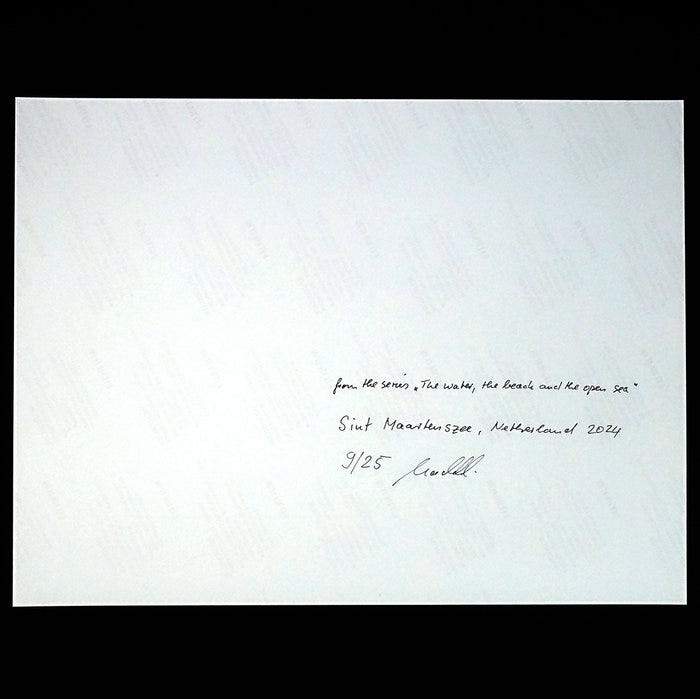 from the series „The water, the beach and the open sea"
Sint Maartenszee, Netherland 2024
9/25